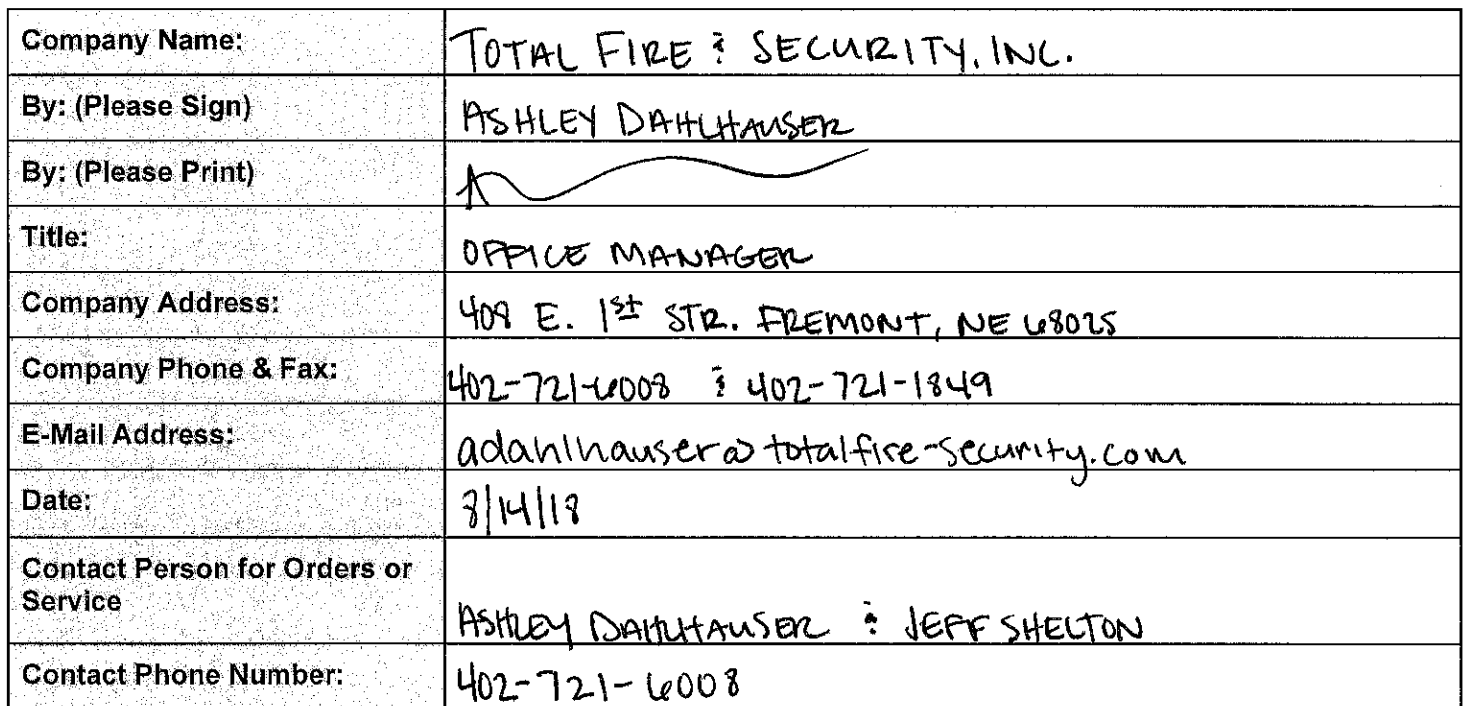 Company Name: TOTAL FIRE & SECURITY, INC.
By: (Please Sign) ASHLEY DAHLHAUSER
By: (Please Print)
Title: OFFICE MANAGER
Company Address: 408 E. 1st STR. FREMONT, NE 68025
Company Phone & Fax: 402-721-6008 & 402-721-1849
E-Mail Address: adahlhauser@totalfire-security.com
Date: 8/14/18
Contact Person for Orders or
Service ASHLEY DAHLHAUSER & JEFF SHELTON
Contact Phone Number: 402-721-6008